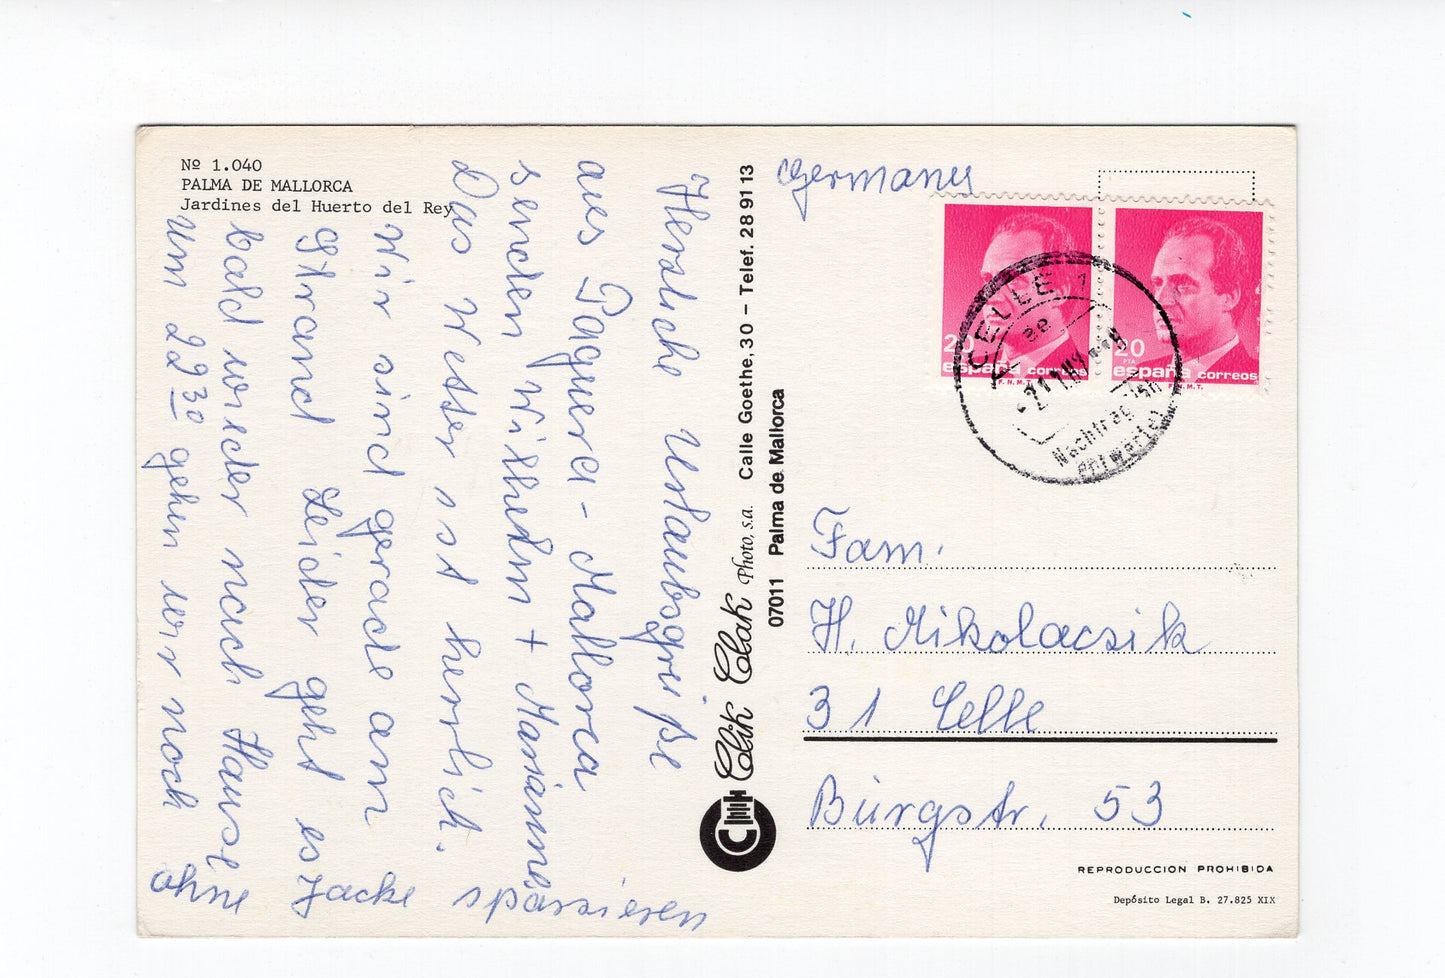 Nº 1.040
PALMA DE MALLORCA
Jardines del Huerto del Rey
Herzliche Urlaubsgrüße
aus Paguera - Mallorca
senden Wilhelm + Marianne
Das Wetter ist herrlich.
Wir sind gerade am
Strand Leider geht es
bald wieder nach Hause
um 22³⁰ gehen wir noch
ohne Jacke spazieren
Clik Clak Photo, s.a. Calle Goethe, 30 - Telef. 28 91 13
07011 Palma de Mallorca
Germany
20
PTA
españa correos
F.N.M.T.
20
PTA
españa correos
F.N.M.T.
CELLE 1
ae
Nachträglich
entwertet
Fam.
H. Mikolacsik
31 Celle
Burgstr. 53
REPRODUCCION PROHIBIDA
Depósito Legal B. 27.825 XIX